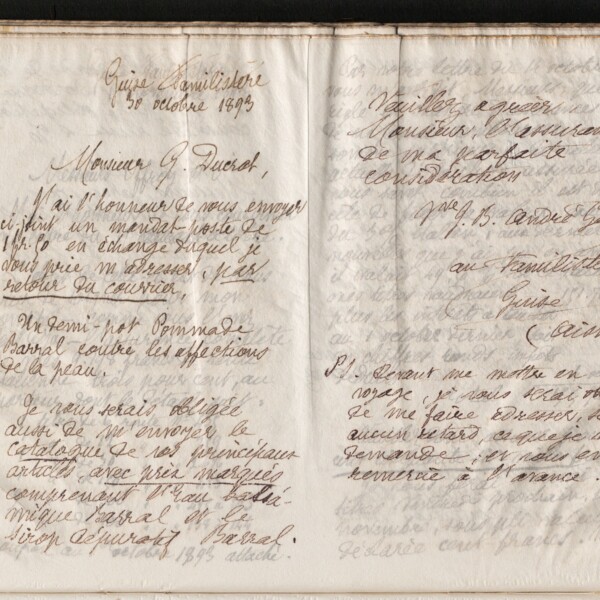 Guise Familistère
30 octobre 1893
Monsieur G. Ducrot,
J'ai l'honneur de vous envoyer
ci joint un mandat-poste de
1 fr. 50 en échange duquel je
vous prie m'adresser, par
retour du courrier,
Un demi-pot Pommade
Barral contre les affections
de la peau.
Je vous serais obligée
aussi de m'envoyer le
catalogue de vos principaux
articles, avec prix marqués
comprenant l'Eau balsa-
mique Barral et le
sirop dépuratif Barral.
Veuillez agréer
Monsieur, l'assuran
de ma parfaite
considération
Vve J. B. André G
au Familist
Guise
(Ais
PS. Devant me mettre en
voyage, je vous serai ob
de me faire adresser, s
aucun retard, ce que je
demande, et vous en
remercie à l'avance.